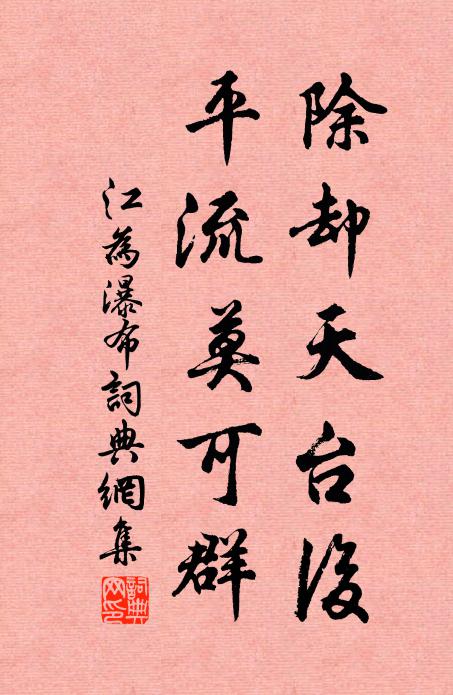 除却天台後
平流莫可群
江為瀑布詞典網集
詞典網印